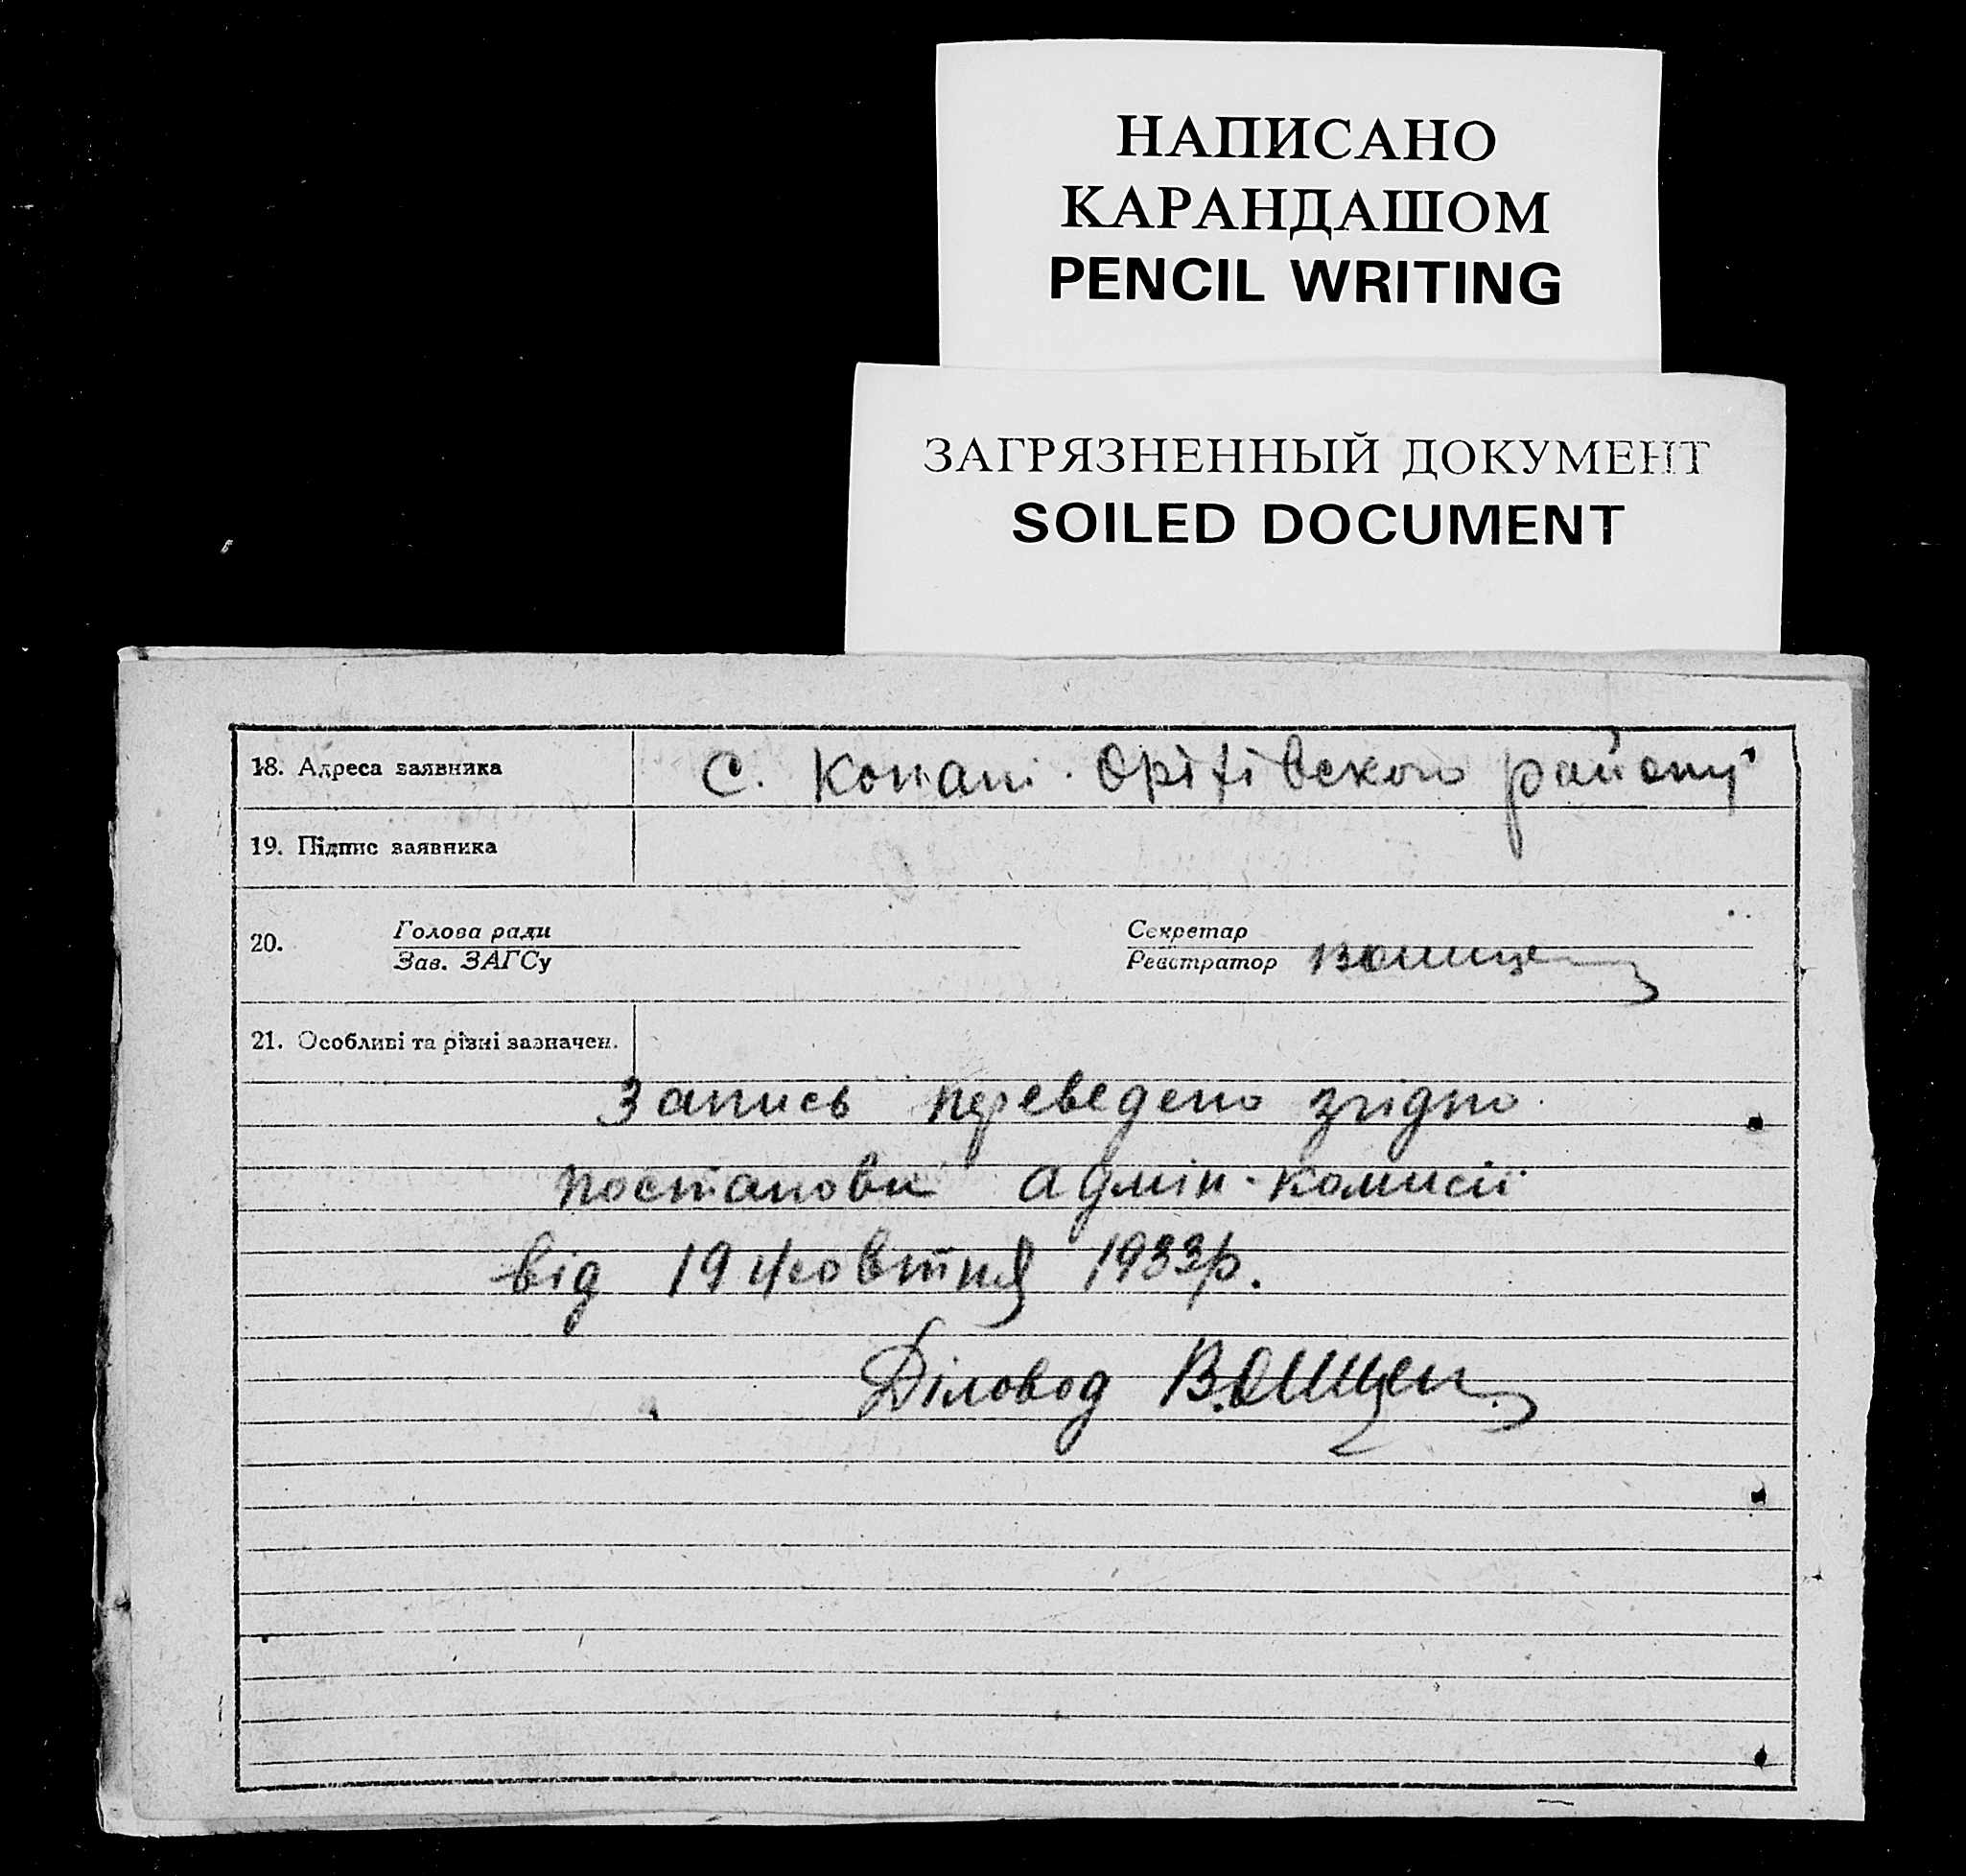 НАПИСАНО
КАРАНДАШОМ
PENCIL WRITING
ЗАГРЯЗНЕННЫЙ ДОКУМЕНТ
SOILED DOCUMENT
18. Адреса заявника С. Копані Оріхівского району
19. Підпис заявника
20. Голова ради Секретар
Зав. ЗАГСу Реєстратор
21. Особливі та різні зазначен.
Запись переведено згідно
постанови адмін-комисії
від 19 жовтня 1933р.
Діловод